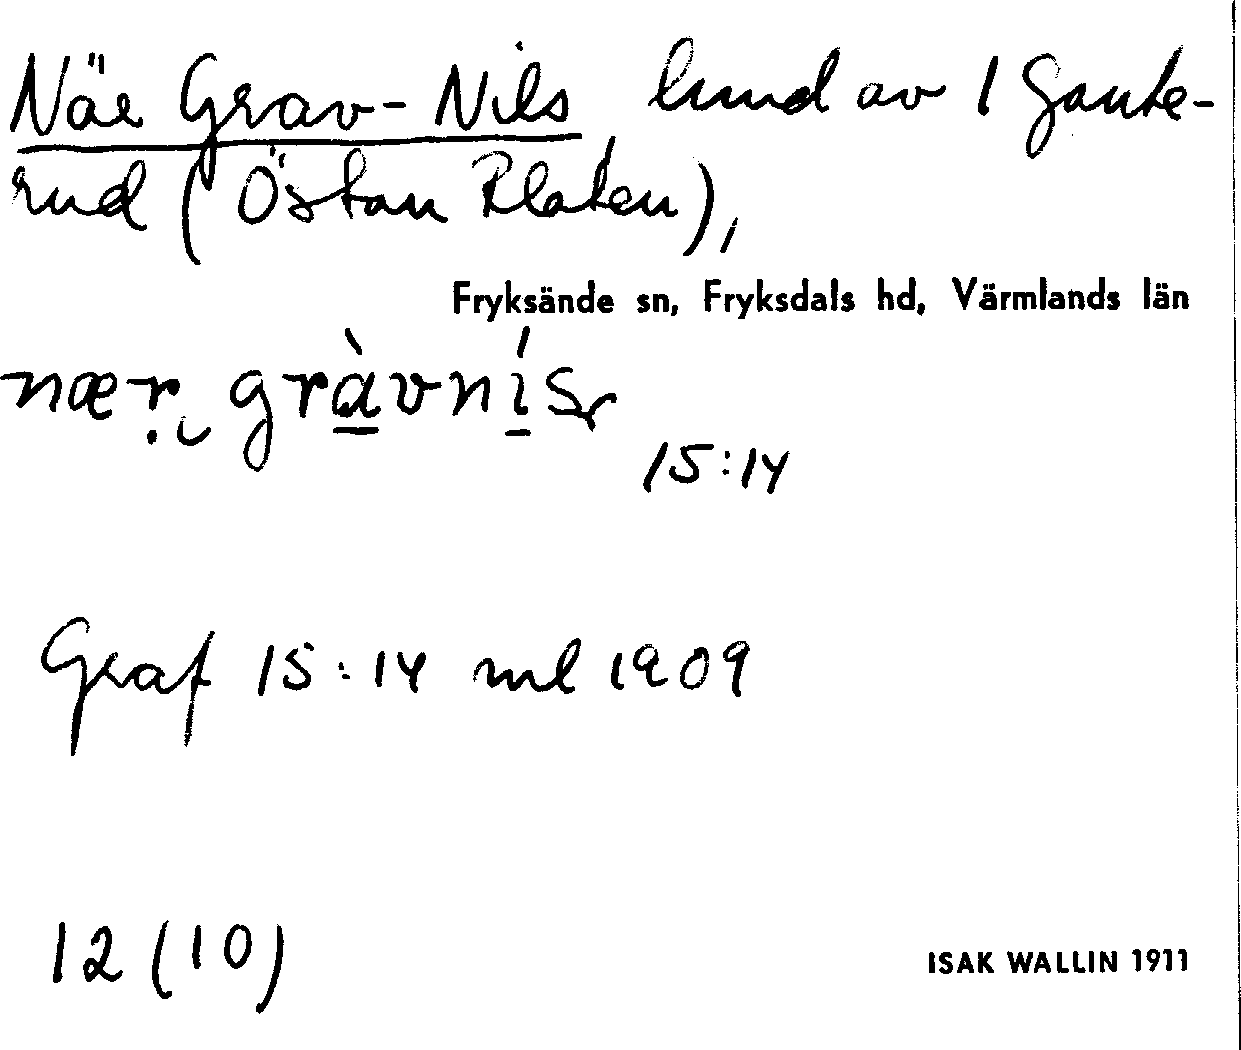 Näe Grav-Nils, lund av 1 Gaute-
rud (Östan Rlaten),
Fryksände sn, Fryksdals hd, Värmlands län
nær gràvnís
15:14
Graf 15:14 ml 1909
12 (10)
ISAK WALLIN 1911